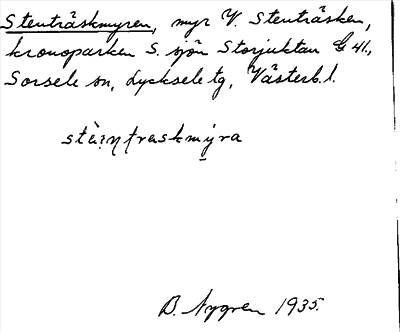 Stenträskmyren, myr V. Stenträsken,
kronoparken S. sjön Storjuktan G 41,
Sorsele sn, Lycksele tg, Västerb. l.
B. Nygren 1935.